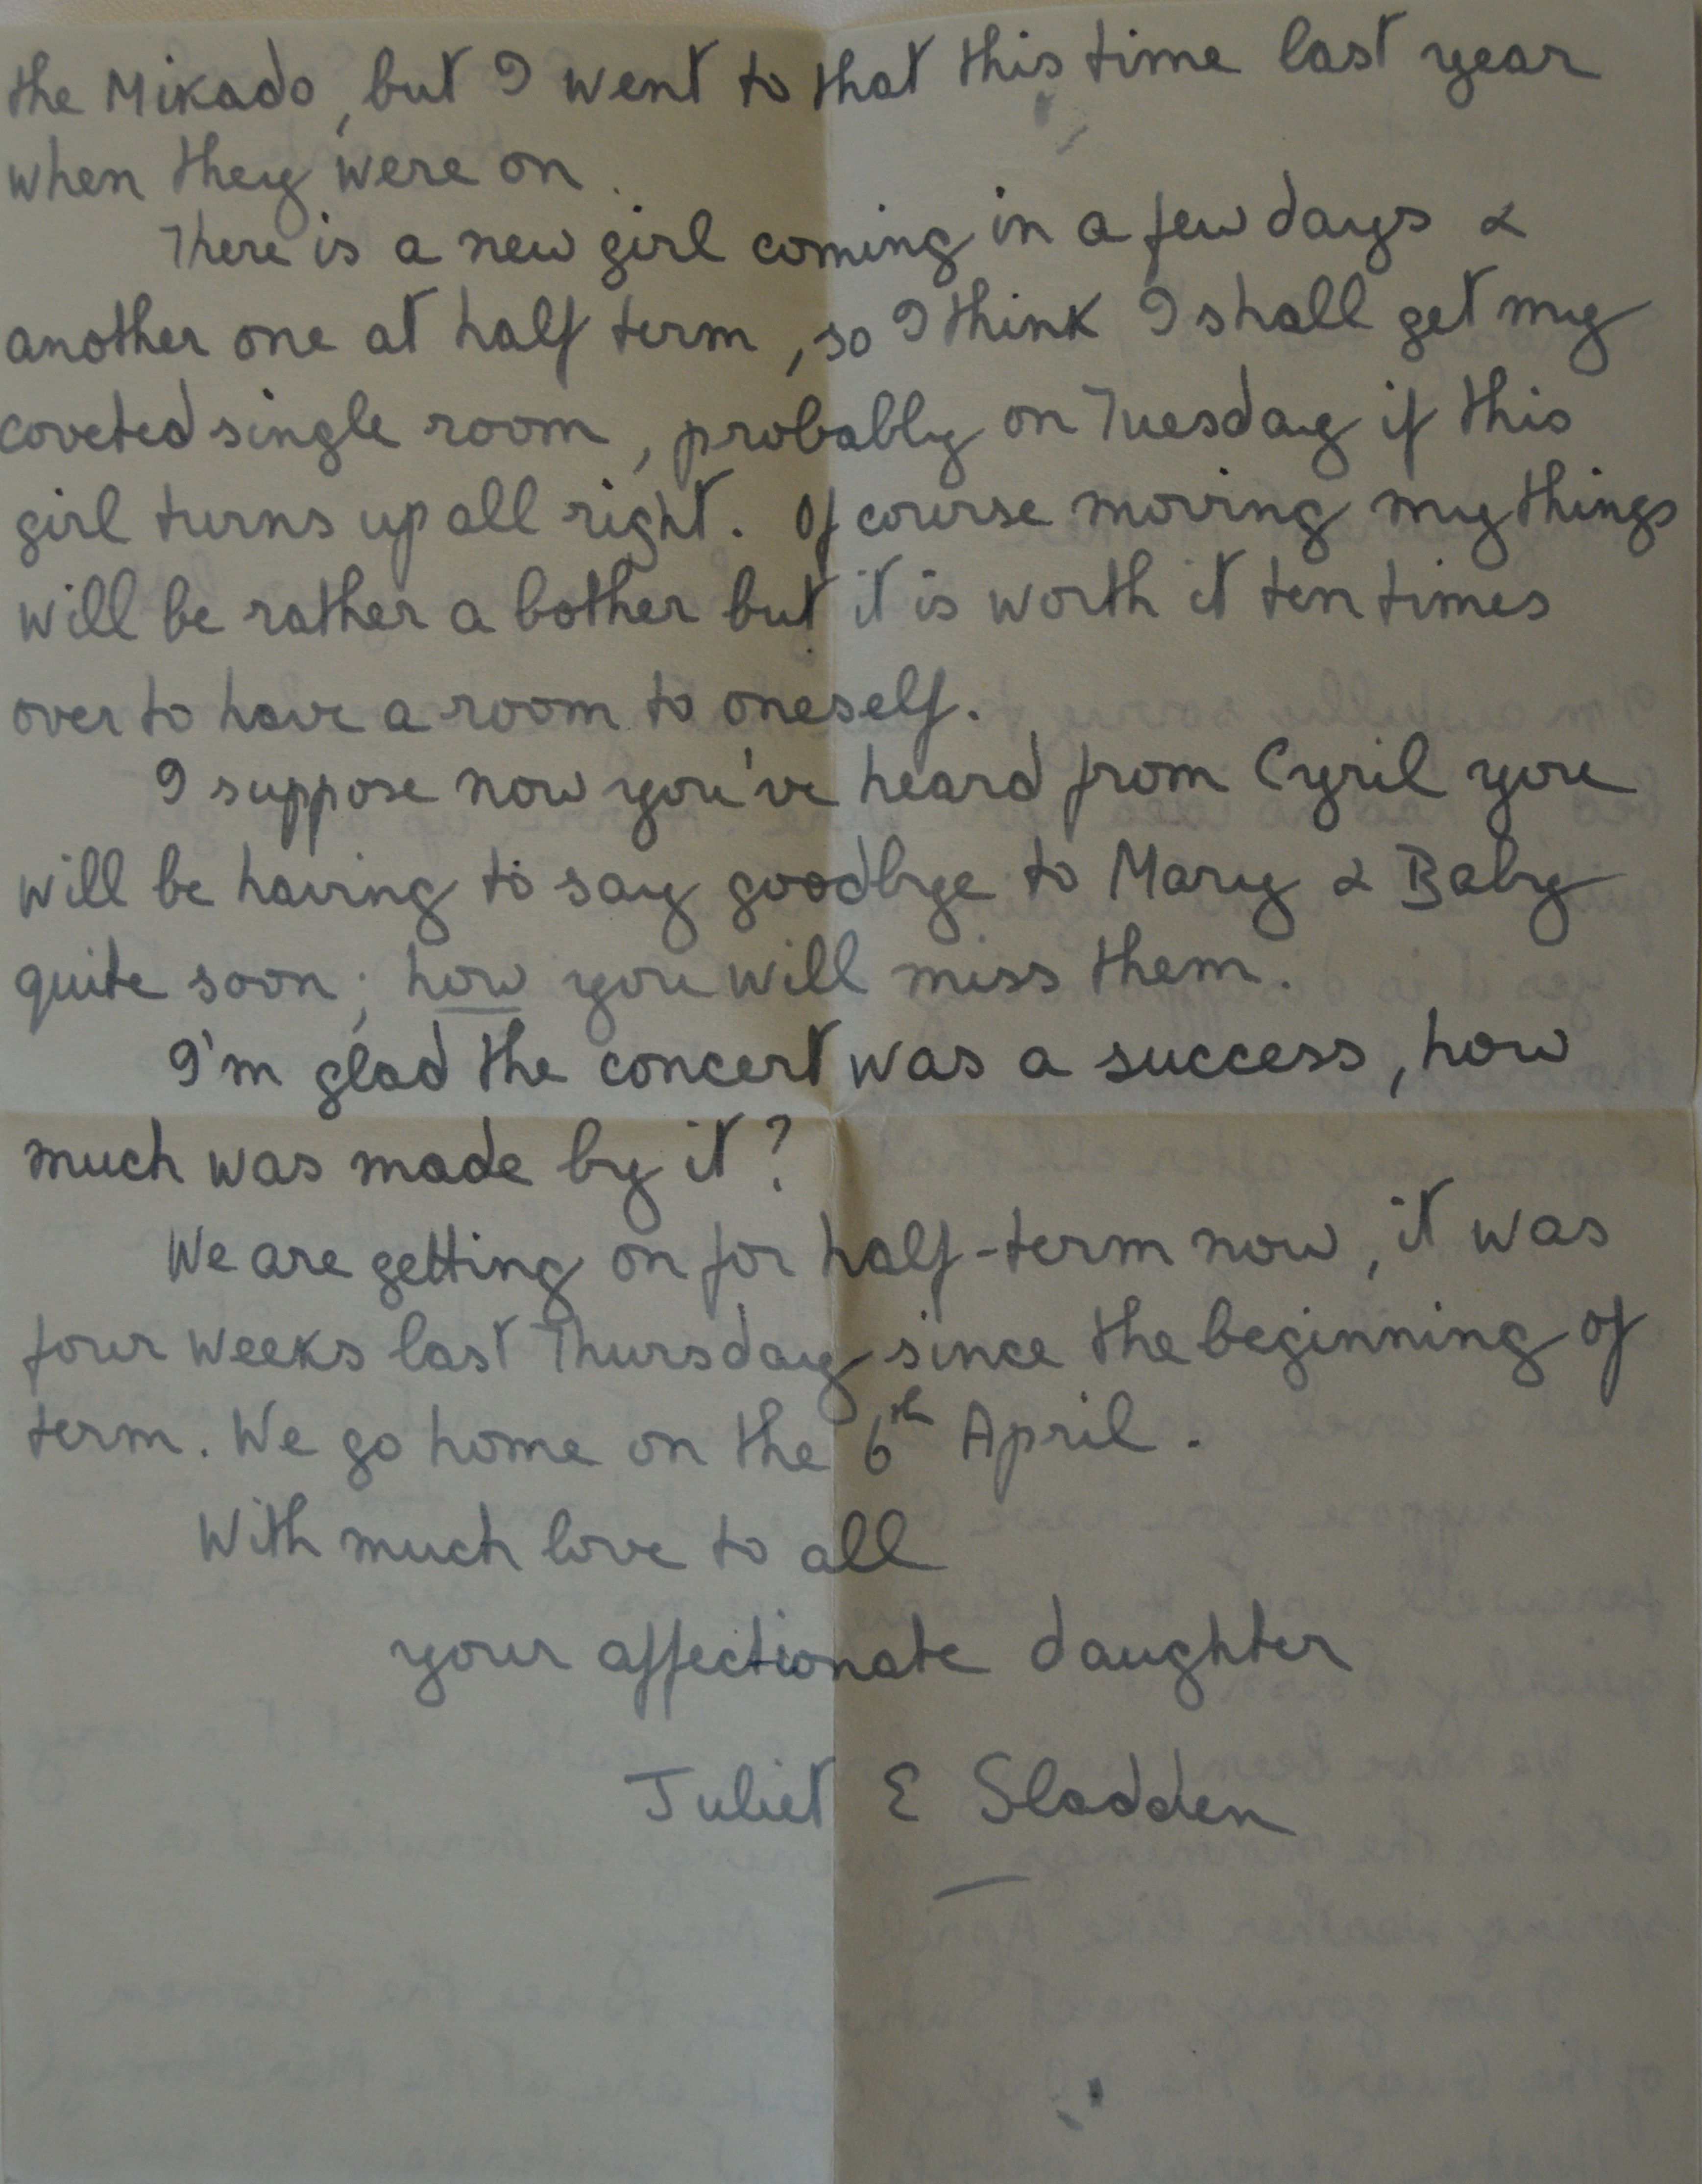 the Mikado, but I went to that this time last year
when they were on.
There is a new girl coming in a few days &
another one at half term, so I think I shall get my
coveted single room, probably on Tuesday if this
girl turns up all right. Of course moving my things
will be rather a bother but it is worth it ten times
over to have a room to oneself.
I suppose now you've heard from Cyril you
will be having to say goodbye to Mary & Baby
quite soon; how you will miss them.
I'm glad the concert was a success, how
much was made by it?
We are getting on for half-term now, it was
four weeks last Thursday since the beginning of
term. We go home on the 6th April.
With much love to all
your affectionate daughter
Juliet E Sladden